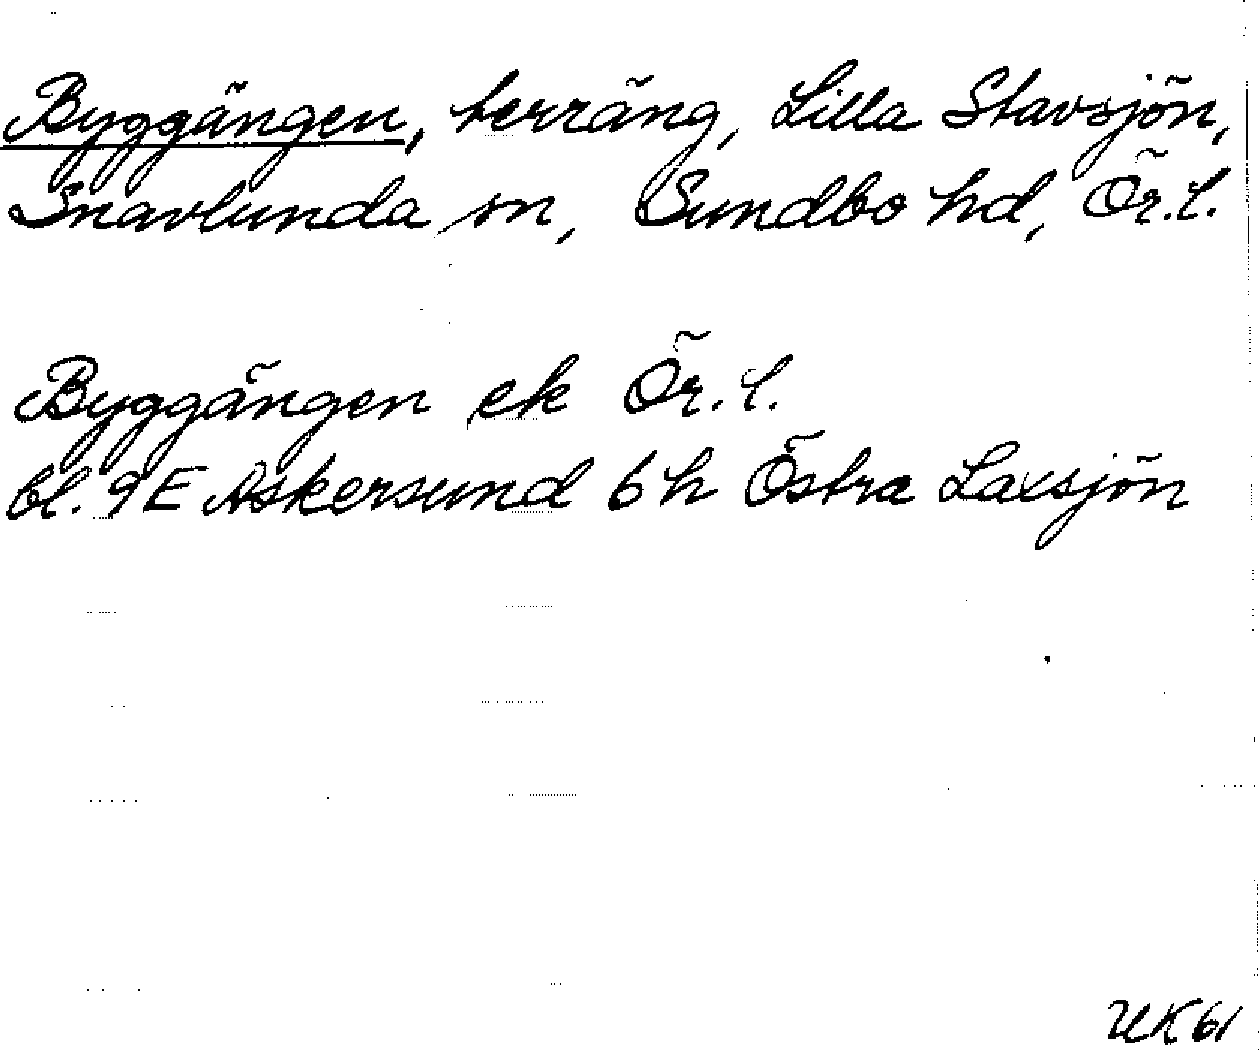 Byggängen, terräng, Lilla Stavsjön,
Snavlunda sn, Sundbo hd, Ör.l.
Byggängen ek Ör.l.
bl. 9E Askersund 6h Östra Laxsjön
UK61